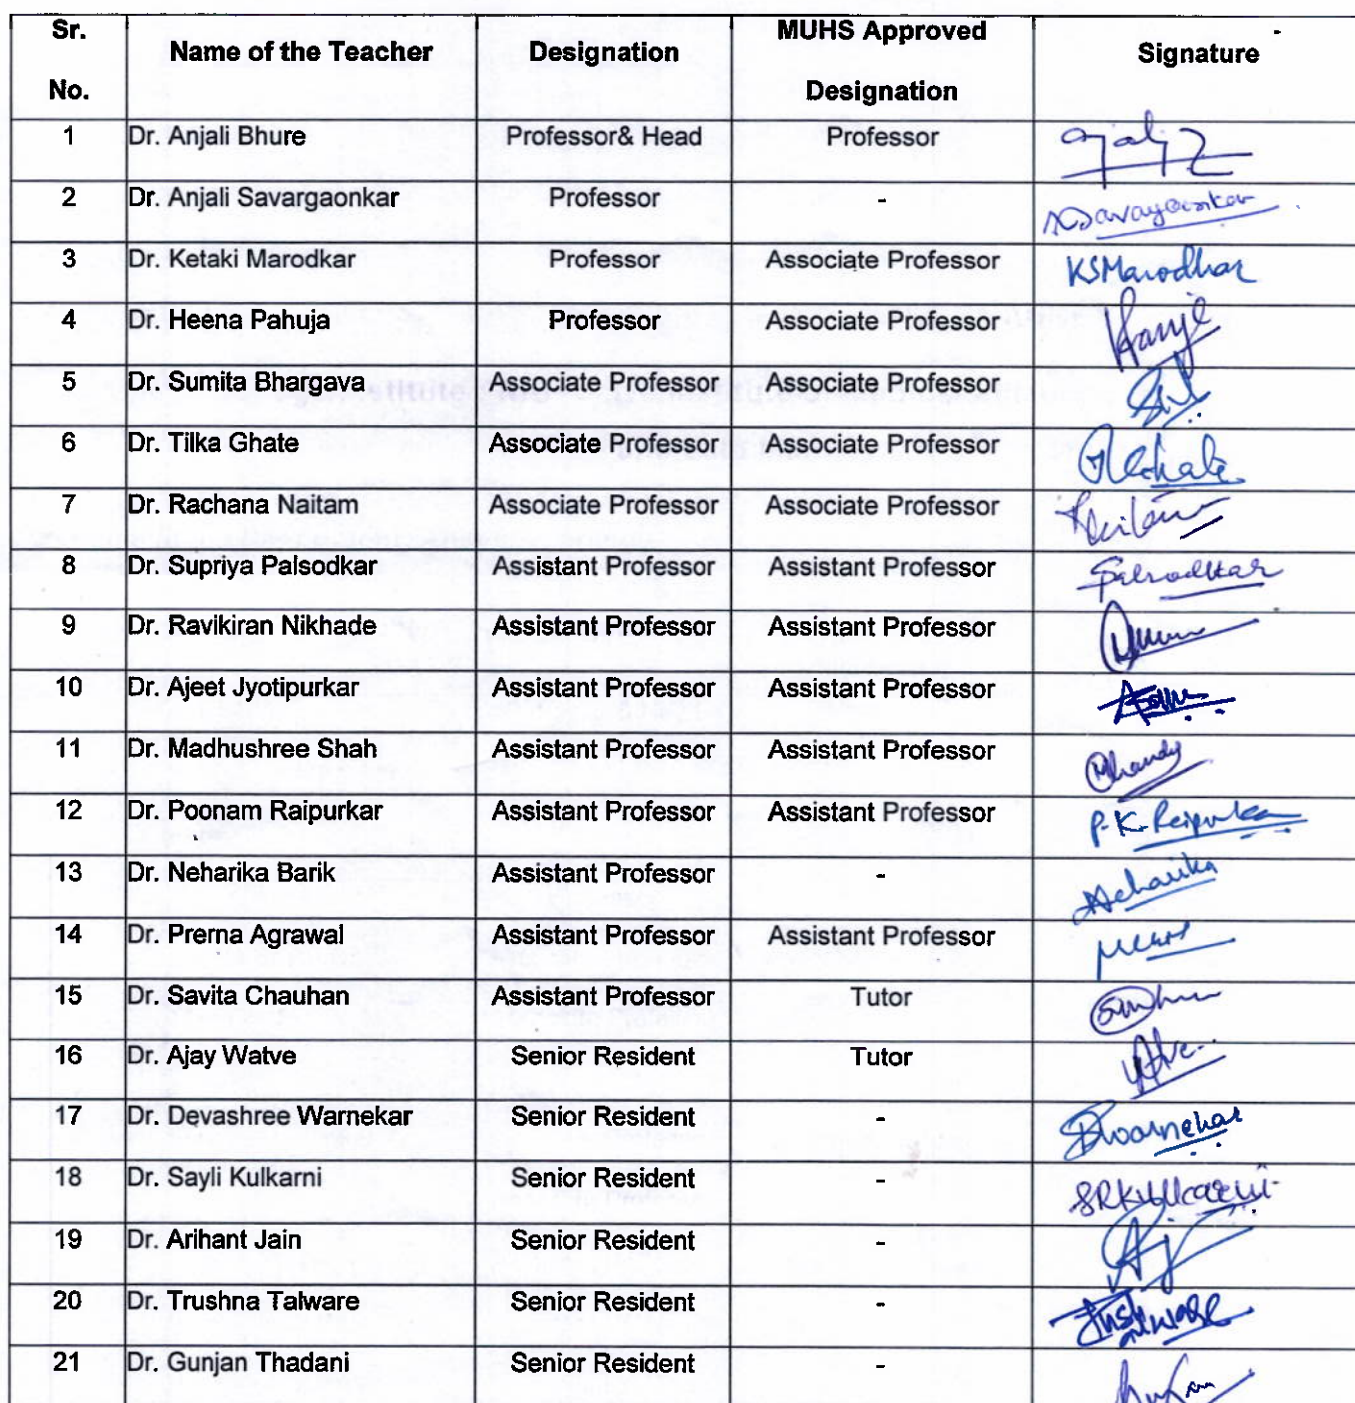 Sr. No. Name of the Teacher Designation MUHS Approved Designation Signature
1 Dr. Anjali Bhure Professor& Head Professor
2 Dr. Anjali Savargaonkar Professor - Savargaonkar
3 Dr. Ketaki Marodkar Professor Associate Professor KSMarodkar
4 Dr. Heena Pahuja Professor Associate Professor
5 Dr. Sumita Bhargava Associate Professor Associate Professor
6 Dr. Tilka Ghate Associate Professor Associate Professor
7 Dr. Rachana Naitam Associate Professor Associate Professor
8 Dr. Supriya Palsodkar Assistant Professor Assistant Professor
9 Dr. Ravikiran Nikhade Assistant Professor Assistant Professor
10 Dr. Ajeet Jyotipurkar Assistant Professor Assistant Professor
11 Dr. Madhushree Shah Assistant Professor Assistant Professor
12 Dr. Poonam Raipurkar Assistant Professor Assistant Professor P.K.Raipurkar
13 Dr. Neharika Barik Assistant Professor - Neharika
14 Dr. Prerna Agrawal Assistant Professor Assistant Professor
15 Dr. Savita Chauhan Assistant Professor Tutor
16 Dr. Ajay Watve Senior Resident Tutor
17 Dr. Devashree Warnekar Senior Resident - DWarnekar
18 Dr. Sayli Kulkarni Senior Resident - SRKulkarni
19 Dr. Arihant Jain Senior Resident - AJ
20 Dr. Trushna Talware Senior Resident -
21 Dr. Gunjan Thadani Senior Resident -